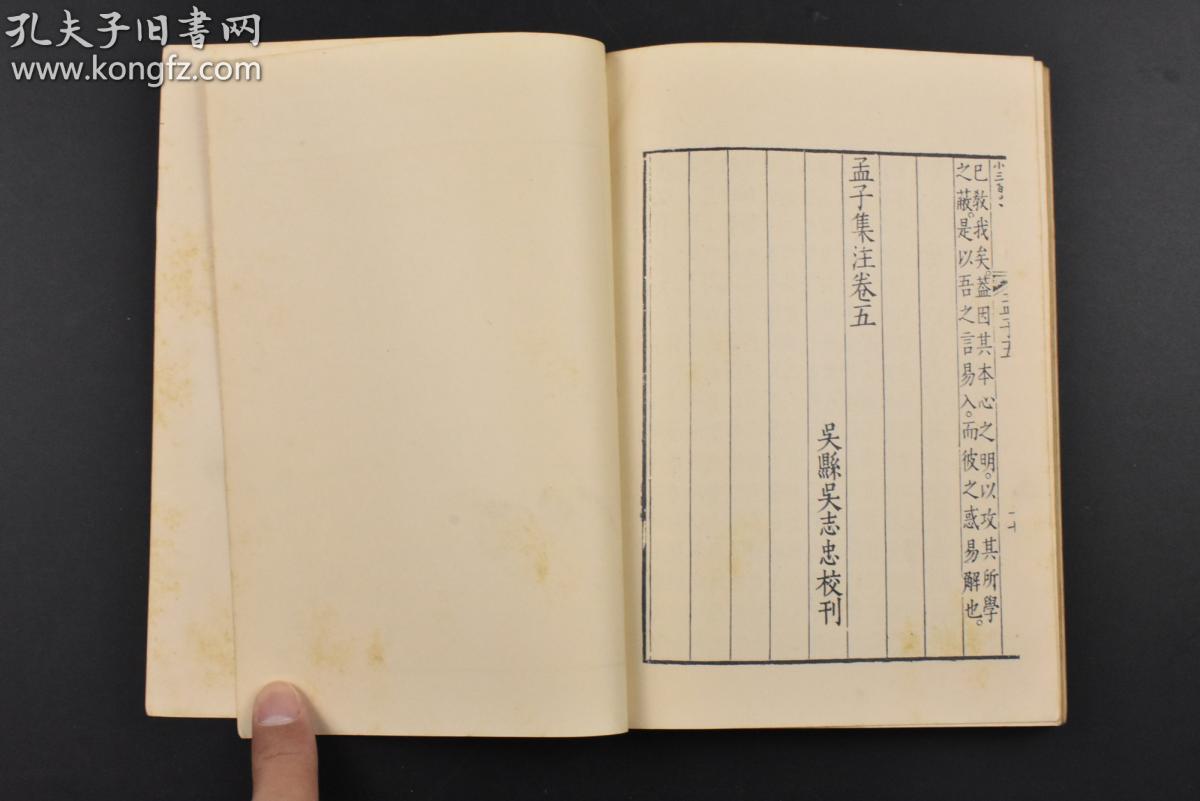 孔夫子旧书网
www.kongfz.com
已敎我矣。蓋因其本心之明。以攻其所學
之蔽。是以吾之言易入。而彼之惑易解也。
孟子集注卷五
吳縣吳志忠校刊